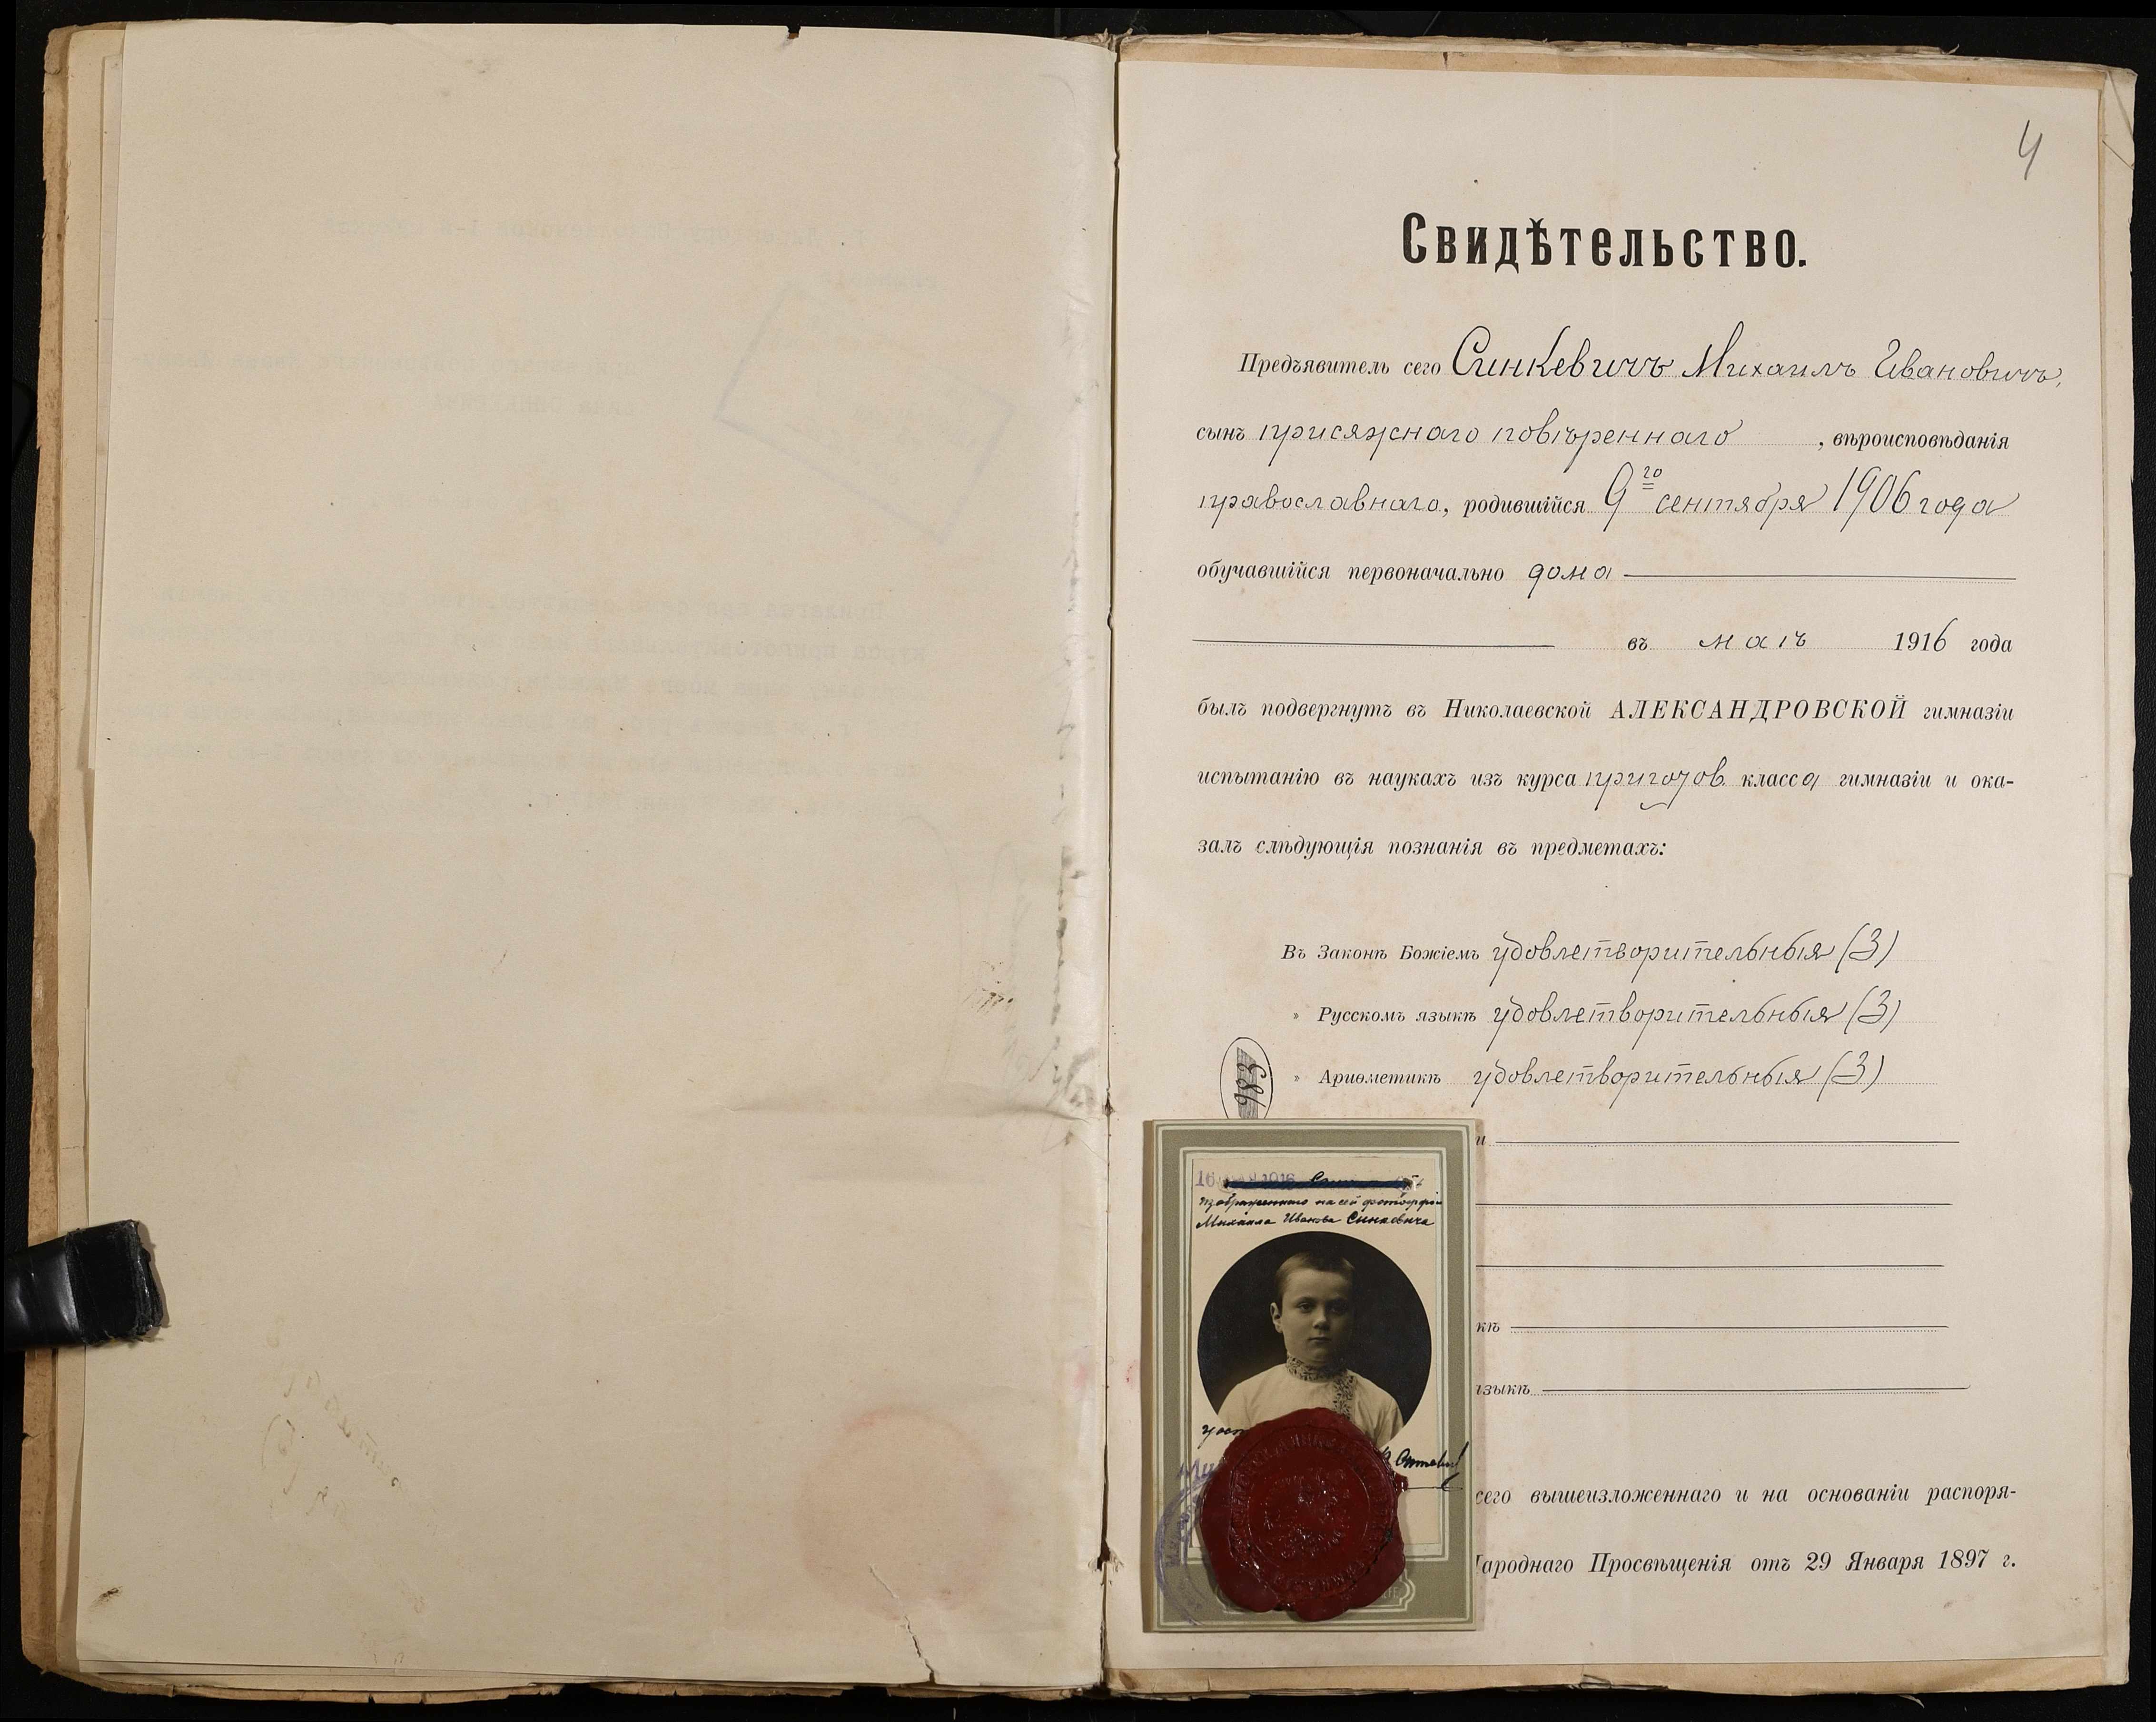 4
Свидѣтельство.
Предъявитель сего Синкевичъ Михаилъ Ивановичъ,
сынъ присяжнаго повѣреннаго, вѣроисповѣданія
православнаго, родившійся 9го сентября 1906 года
обучавшійся первоначально дома
въ маѣ 1916 года
былъ подвергнутъ въ Николаевской АЛЕКСАНДРОВСКОЙ гимназіи
испытанію въ наукахъ изъ курса приготов. класса гимназіи и ока-
залъ слѣдующія познанія въ предметахъ:
Въ Законѣ Божіемъ удовлетворительныя (3)
" Русскомъ языкѣ удовлетворительныя (3)
" Ариѳметикѣ удовлетворительныя (3)
983
и
кѣ
языкѣ
16 1916
изображеннаго на сей фотографіи
Михаила Иванова Синкевича
сего вышеизложеннаго и на основаніи распоря-
Народнаго Просвѣщенія отъ 29 Января 1897 г.